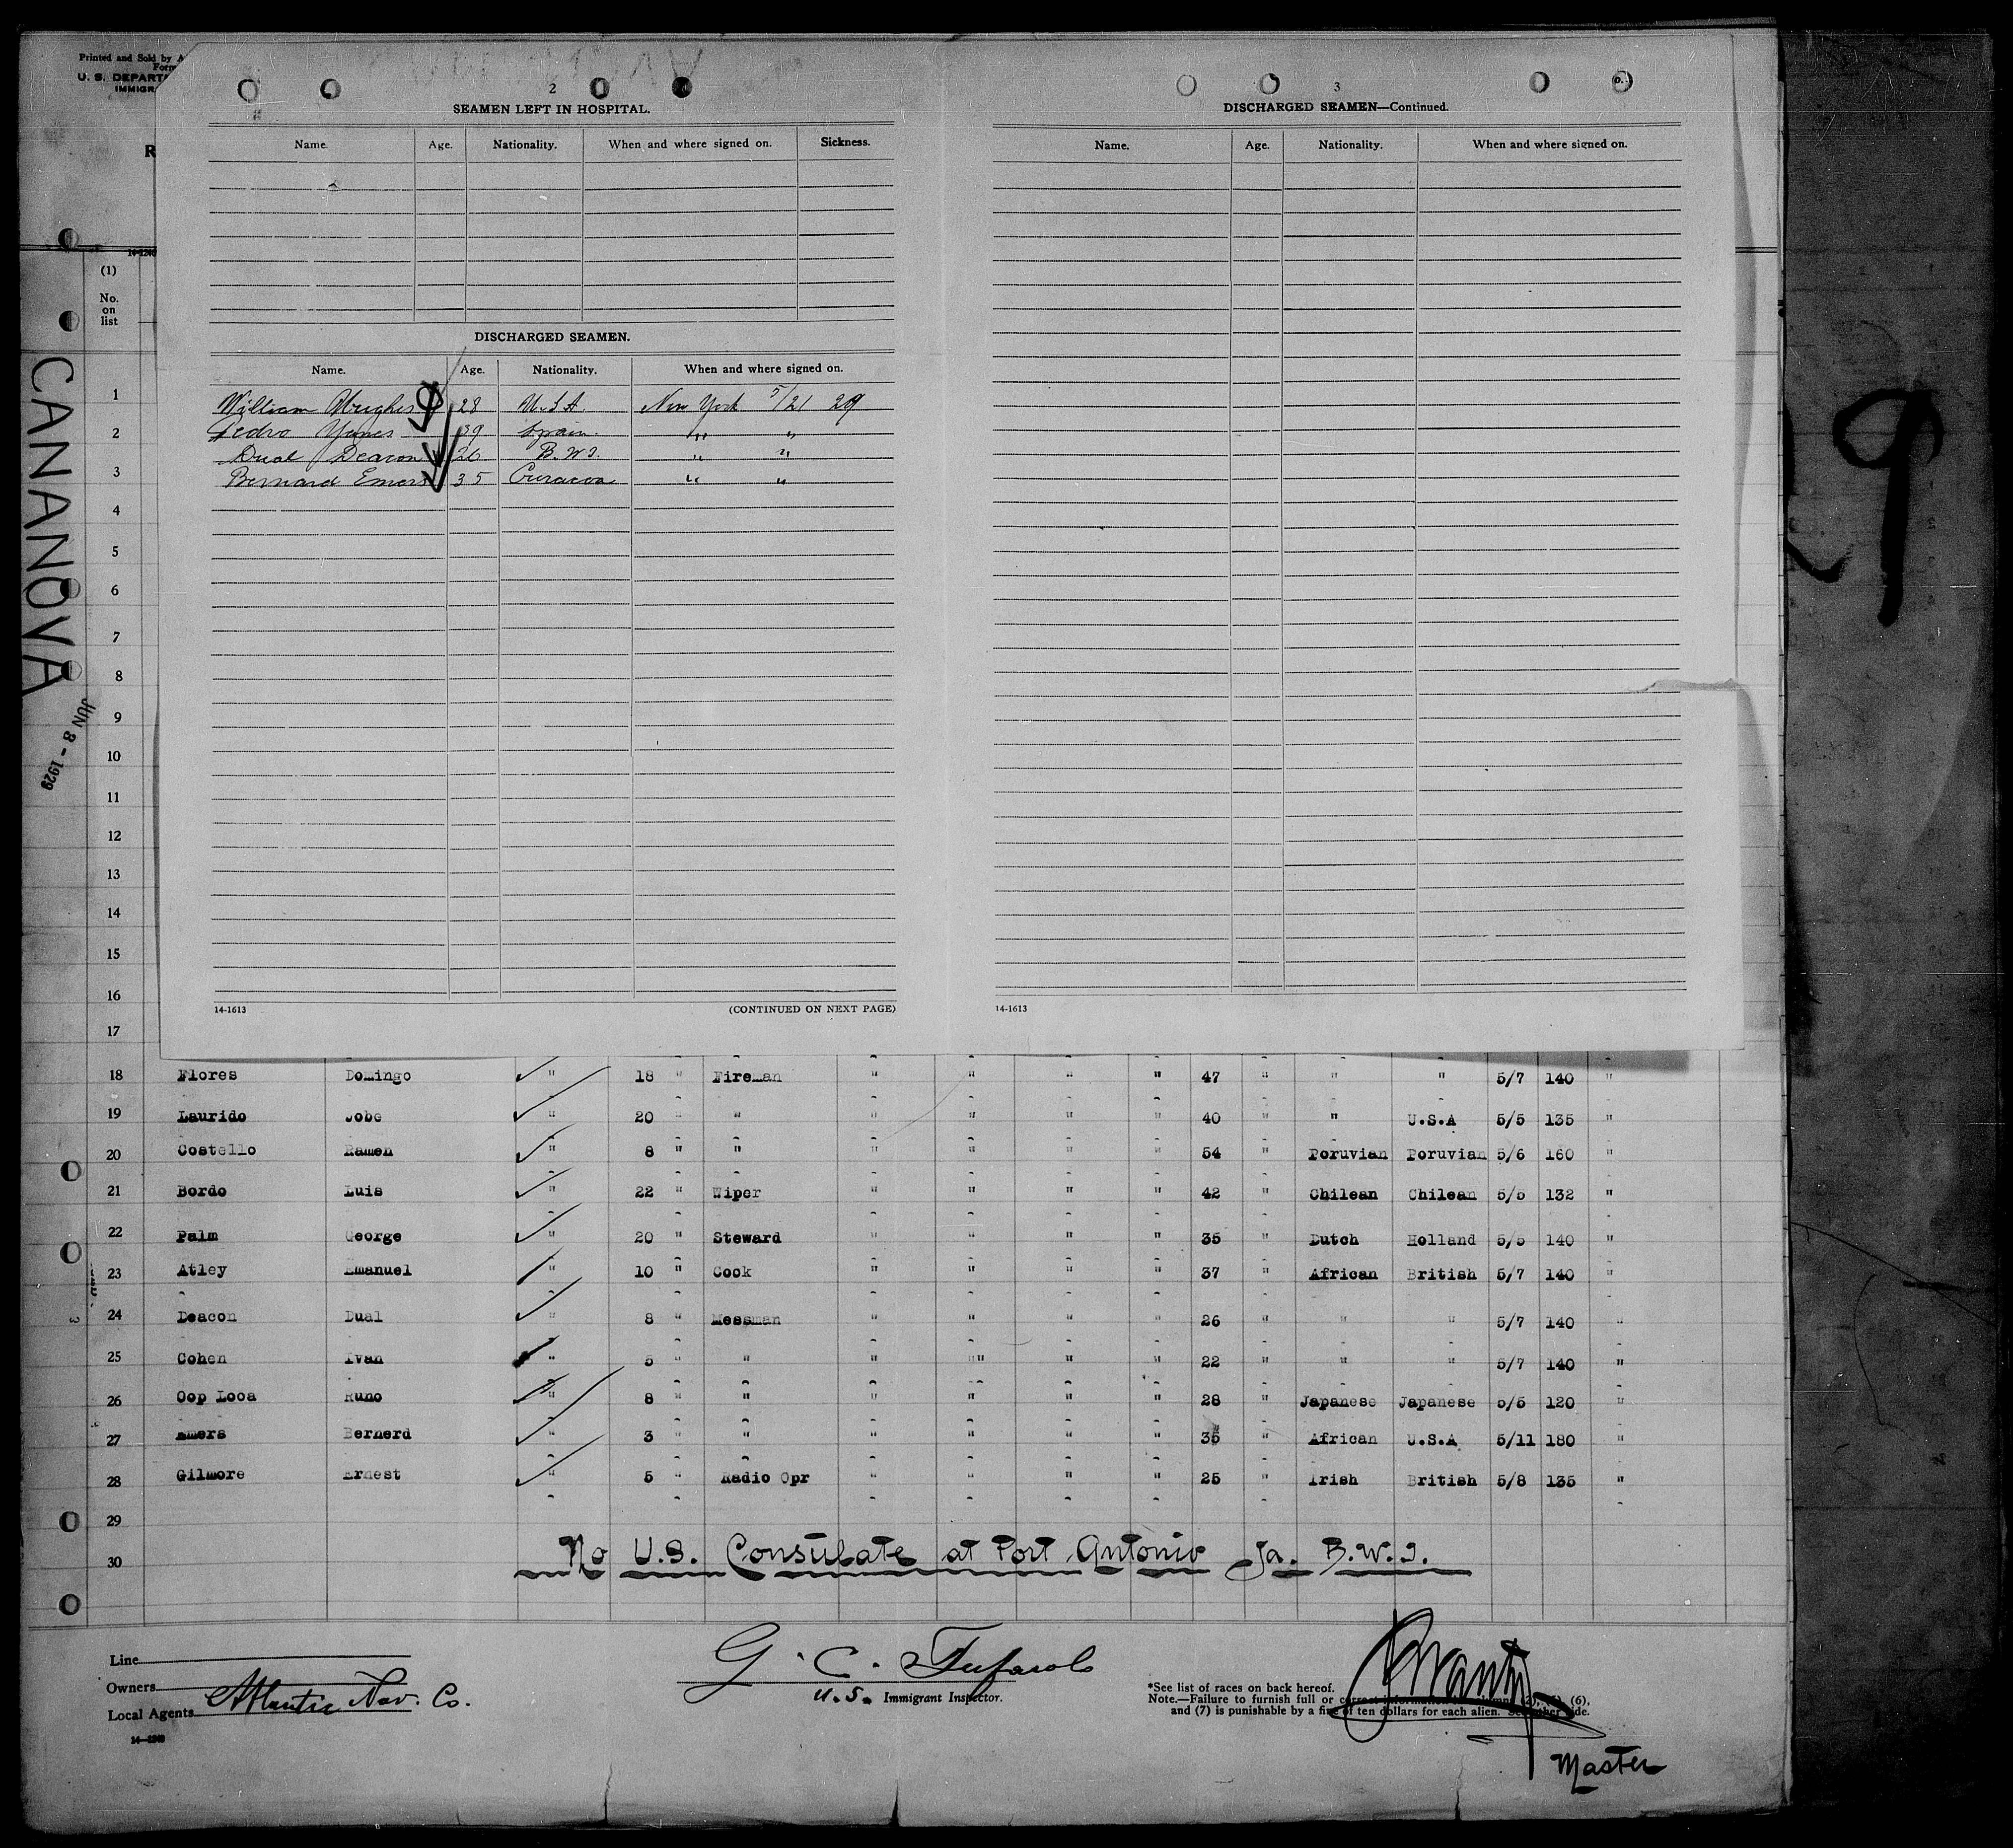 Printed and Sold by A
Form
U. S. DEPART
IMMIGR
R
14-1240
(1)
No.
on
list
CANANOVA
JUN 3 - 1929
2
SEAMEN LEFT IN HOSPITAL.
Name. Age. Nationality. When and where signed on. Sickness.
DISCHARGED SEAMEN.
Name. Age. Nationality. When and where signed on.
William Hughes 28 U.S.A. New York 5/21 29
Pedro Yanes 39 Spain. " "
Dual Deacon 26 B.W.I. " "
Bernard Emers 35 Curacoa " "
14-1613 (CONTINUED ON NEXT PAGE)
3
DISCHARGED SEAMEN—Continued.
Name. Age. Nationality. When and where signed on.
14-1613
9
1
2
3
4
5
6
7
8
9
10
11
12
13
14
15
16
17
18 Flores Domingo " 18 " Fireman " " " " 47 " " " 5/7 140 "
19 Laurido Jobe " 20 " " " " " " 40 " " U.S.A 5/5 135 "
20 Costello Ramen " 8 " " " " " " 54 " Poruvian Poruvian 5/6 160 "
21 Bordo Luis " 22 " Wiper " " " " 42 " Chilean Chilean 5/5 132 "
22 Palm George " 20 " Steward " " " " 35 " Dutch Holland 5/5 140 "
23 Atley Emanuel " 10 " Cook " " " " 37 " African British 5/7 140 "
24 Deacon Dual " 8 " Messman " " " " 26 " " " 5/7 140 "
25 Cohen Ivan " 5 " " " "" " " 22 " " " 5/7 140 "
26 Oop Looa Runo " 8 " " " " " " 28 " Japanese Japanese 5/5 120 "
27 Emers Bernerd " 3 " " " " " " 35 " African U.S.A 5/11 180 "
28 Gilmore Ernest " 5 " Radio Opr " " " " 25 " Irish British 5/8 135 "
29
30 No U.S. Consulate at Port Antonio Ja. B.W.I.
Line
Owners
Local Agents Atlantic Nav. Co.
14-1240
G. C. Tufarolo
U.S. Immigrant Inspector.
*See list of races on back hereof.
Note.—Failure to furnish full or correct information in columns (2), (5), (6),
and (7) is punishable by a fine of ten dollars for each alien. See other side.
Master